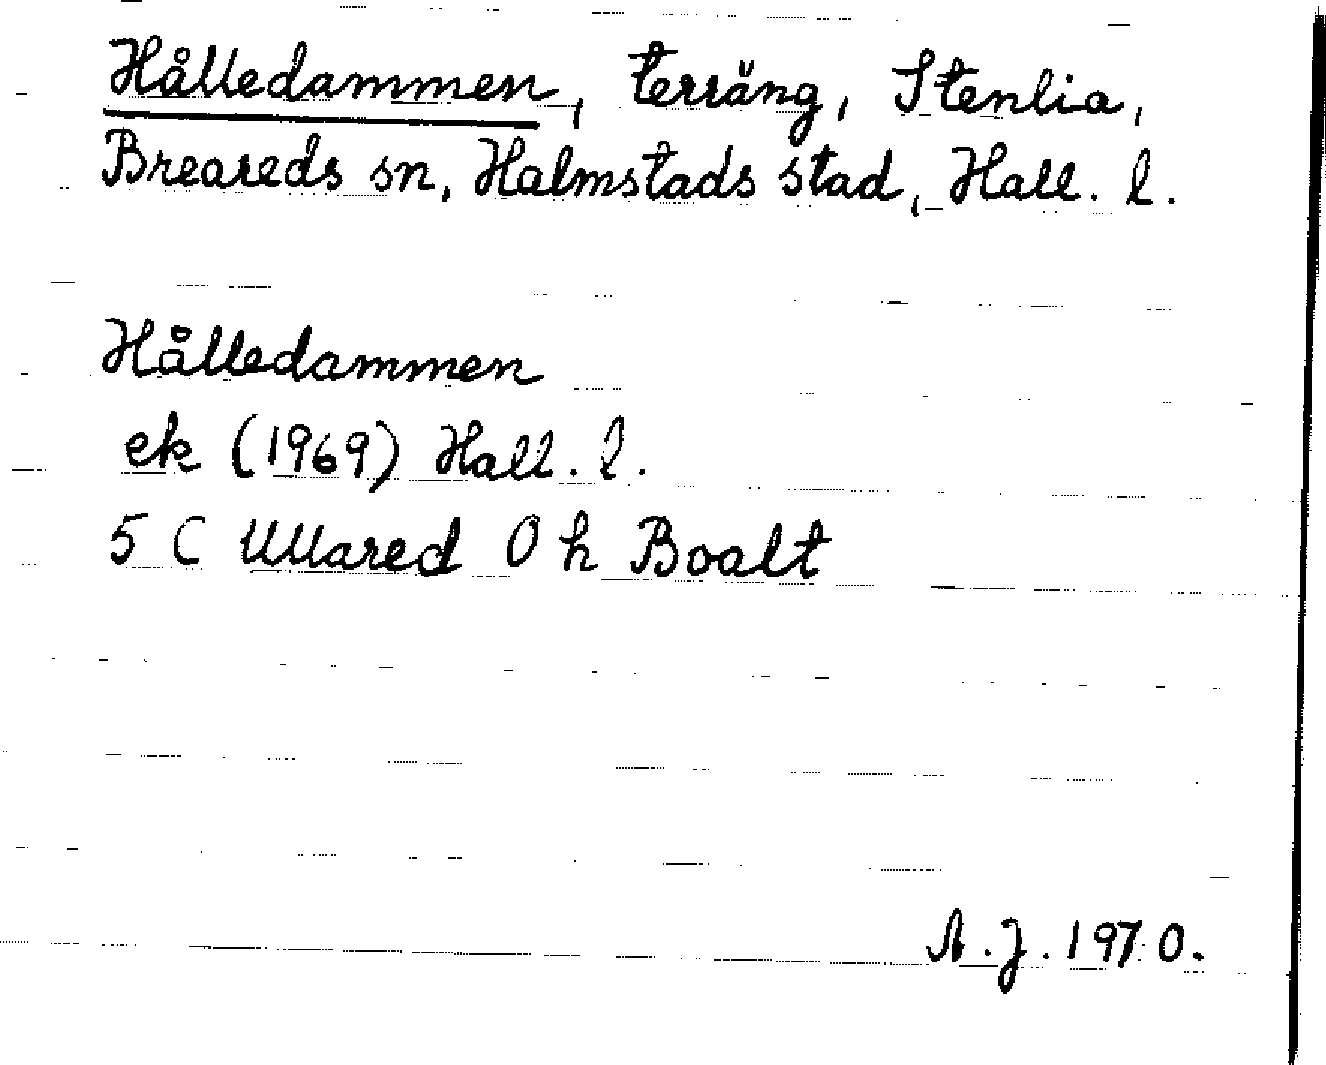 Hålledammen, terräng, Stenlia,
Breareds sn, Halmstads stad, Hall. l.
Hålledammen
ek (1969) Hall. l.
5 C Ullared 0 h Boalt
A.J. 1970.